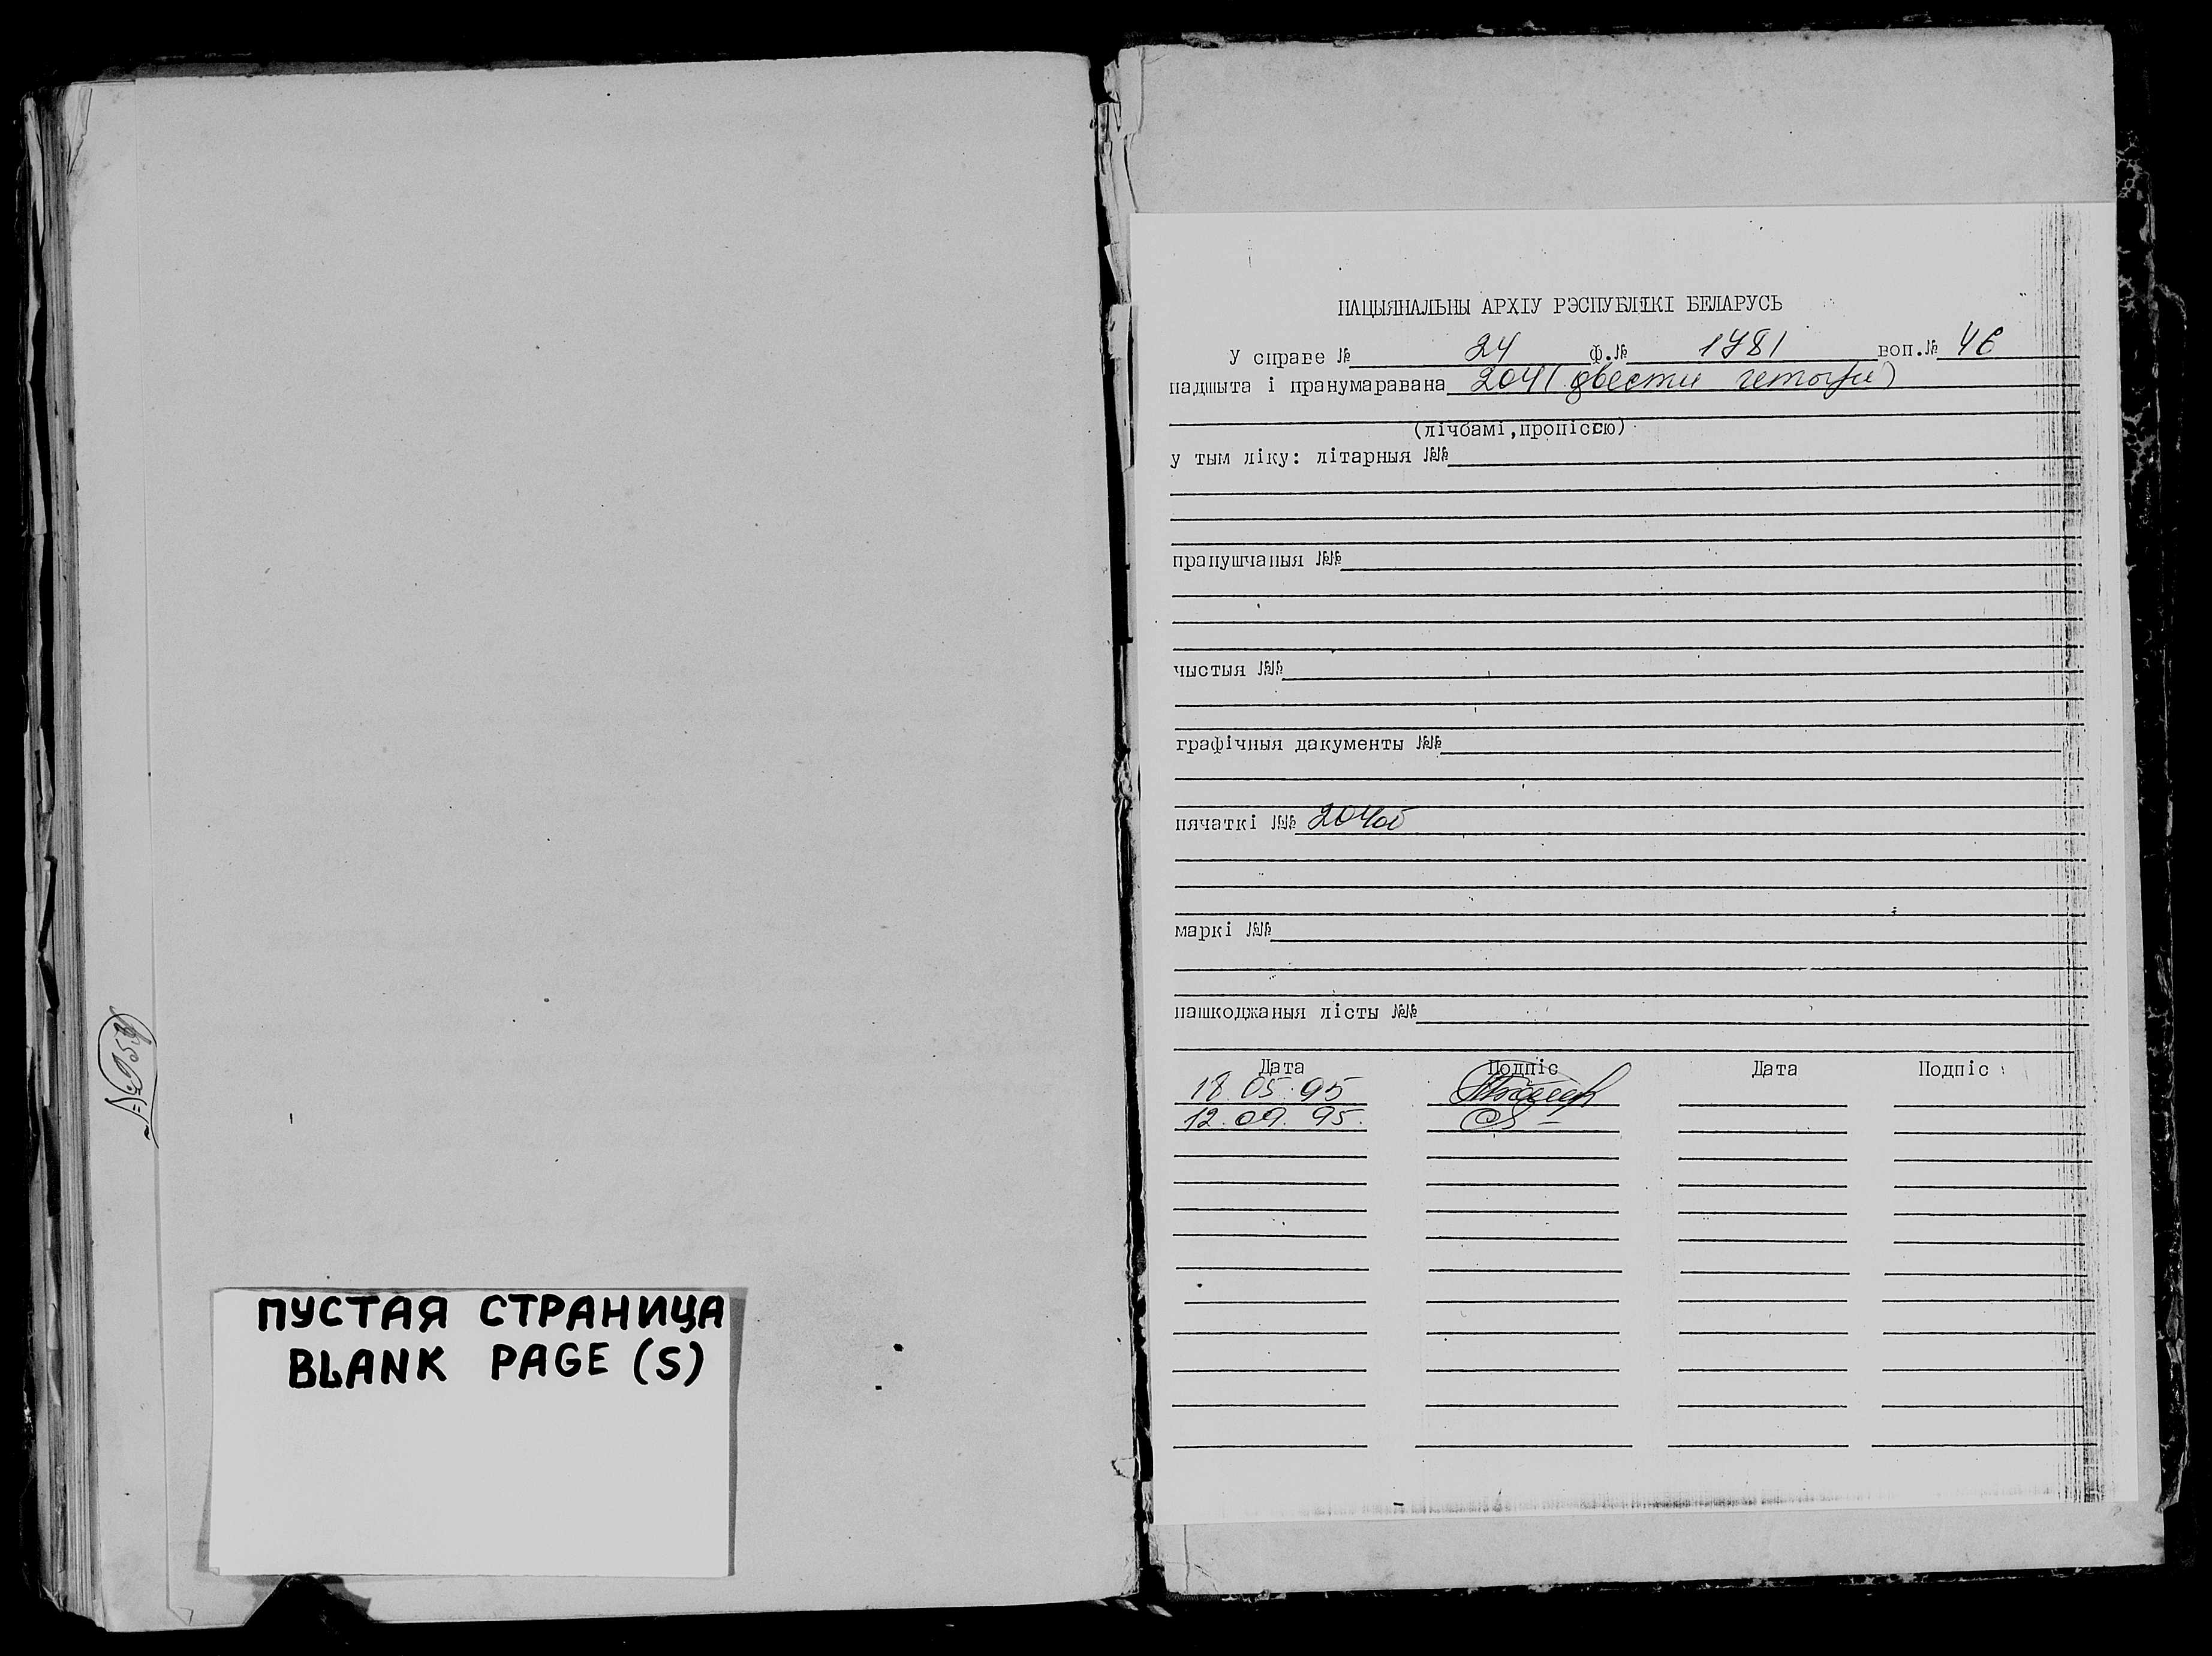 ПУСТАЯ СТРАНИЦА
BLANK PAGE (S)
НАЦЫЯНАЛЬНЫ АРХІУ РЭСПУБЛІКІ БЕЛАРУСЬ
У справе № 24 ф.№ 1781 воп.№ 46
падшыта і пранумаравана 204 (двести четыре)
(лічбамі,пропіссю)
у тым ліку: літарныя №№
прапушчаныя №№
чыстыя №№
графічныя дакументы №№
пячаткі №№ 204об
маркі №№
пашкоджаныя лісты №№
Дата Подпіс Дата Подпіс
18.05.95
12.09.95.